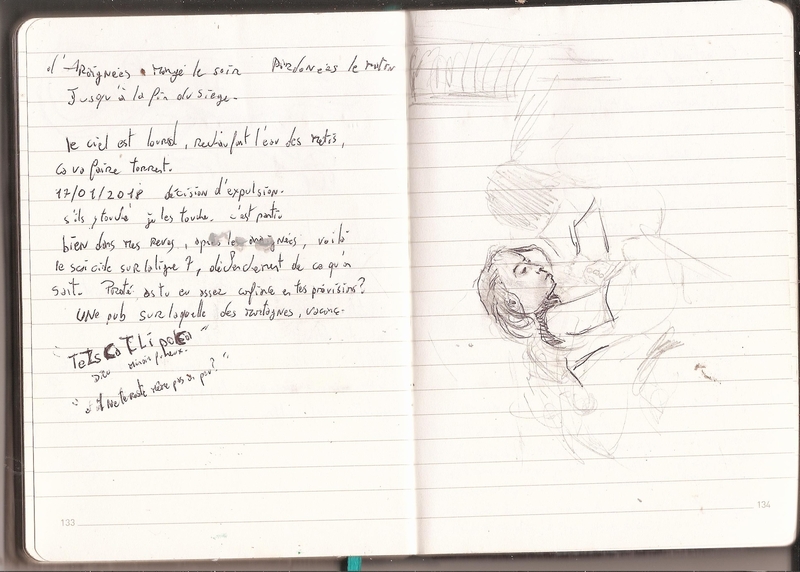 d'Araignées. mangé le soir Pardonées le matin
Jusqu'à la fin du siège.
le ciel est lourd, réchauffant l'eau des
ça va faire torrent.
17/01/2018 décision d'expulsion.
s'ils y touche je les touche. c'est parti
bien dans mes Reves, après les araignées, voilà
le suicide sur la ligne 7, déclenchement de ce qu'on
sait. as tu eu assez confiance en tes prévisions?
UNe pub sur laquelle des montagnes, vacance.
TeTsCaTLipoCa"
Dieu miroir fumeux.
" il ne te reste même pas un peu? "
133
134